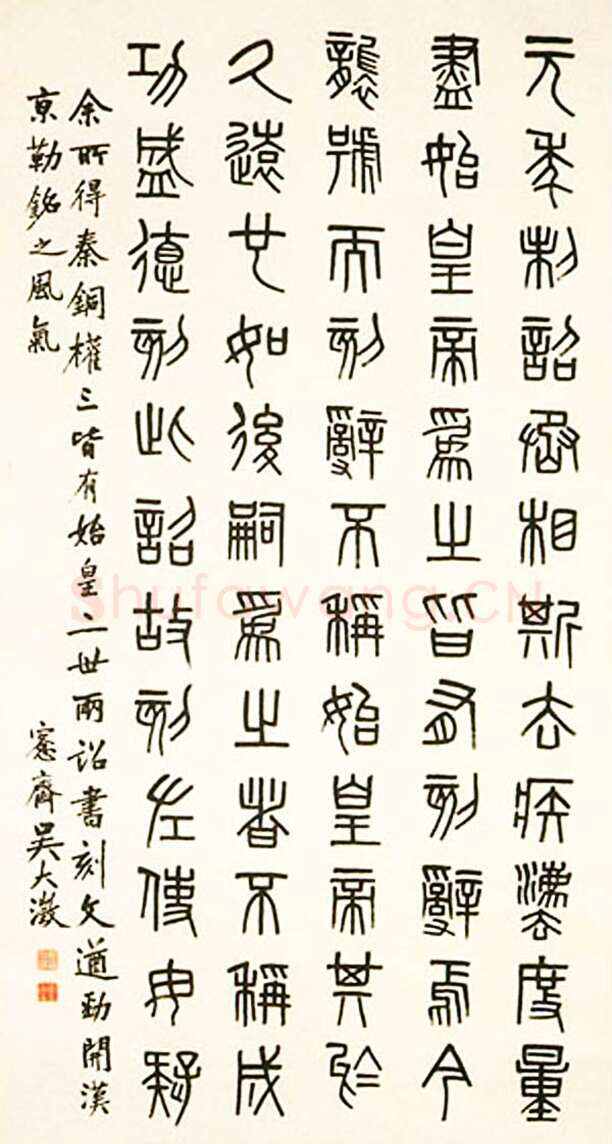 元年制詔丞相斯去疾灋度量
盡始皇帝為之皆有刻辭焉今
襲號而刻辭不稱始皇帝其於
久遠也如後嗣為之者不稱成
功盛德刻此詔故刻左使毋疑
余所得秦銅權三皆有始皇二世兩詔書刻文遒勁開漢
京勒銘之風氣
愙齋吳大澂
Shufawang.CN